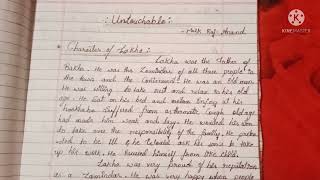 : Untouchable:
- Mulk Raj Anand
KINEMASTER
Character of Lakha:
Lakha was the father of
Bakha. He was the Zamindar of all those people in
the town and the Cantonment. He was an old man.
He was willing to take rest and relax in his old
age. He sat on his bed and
suffered from asthmatic cough old age
had made him weak and He wanted his son
to take over the responsibility of the family. He
to be ill & he would ask his sons to take
up his work. He himself from
Lakha was very proud of his reputation
as a Zamindar. He was very happy when people